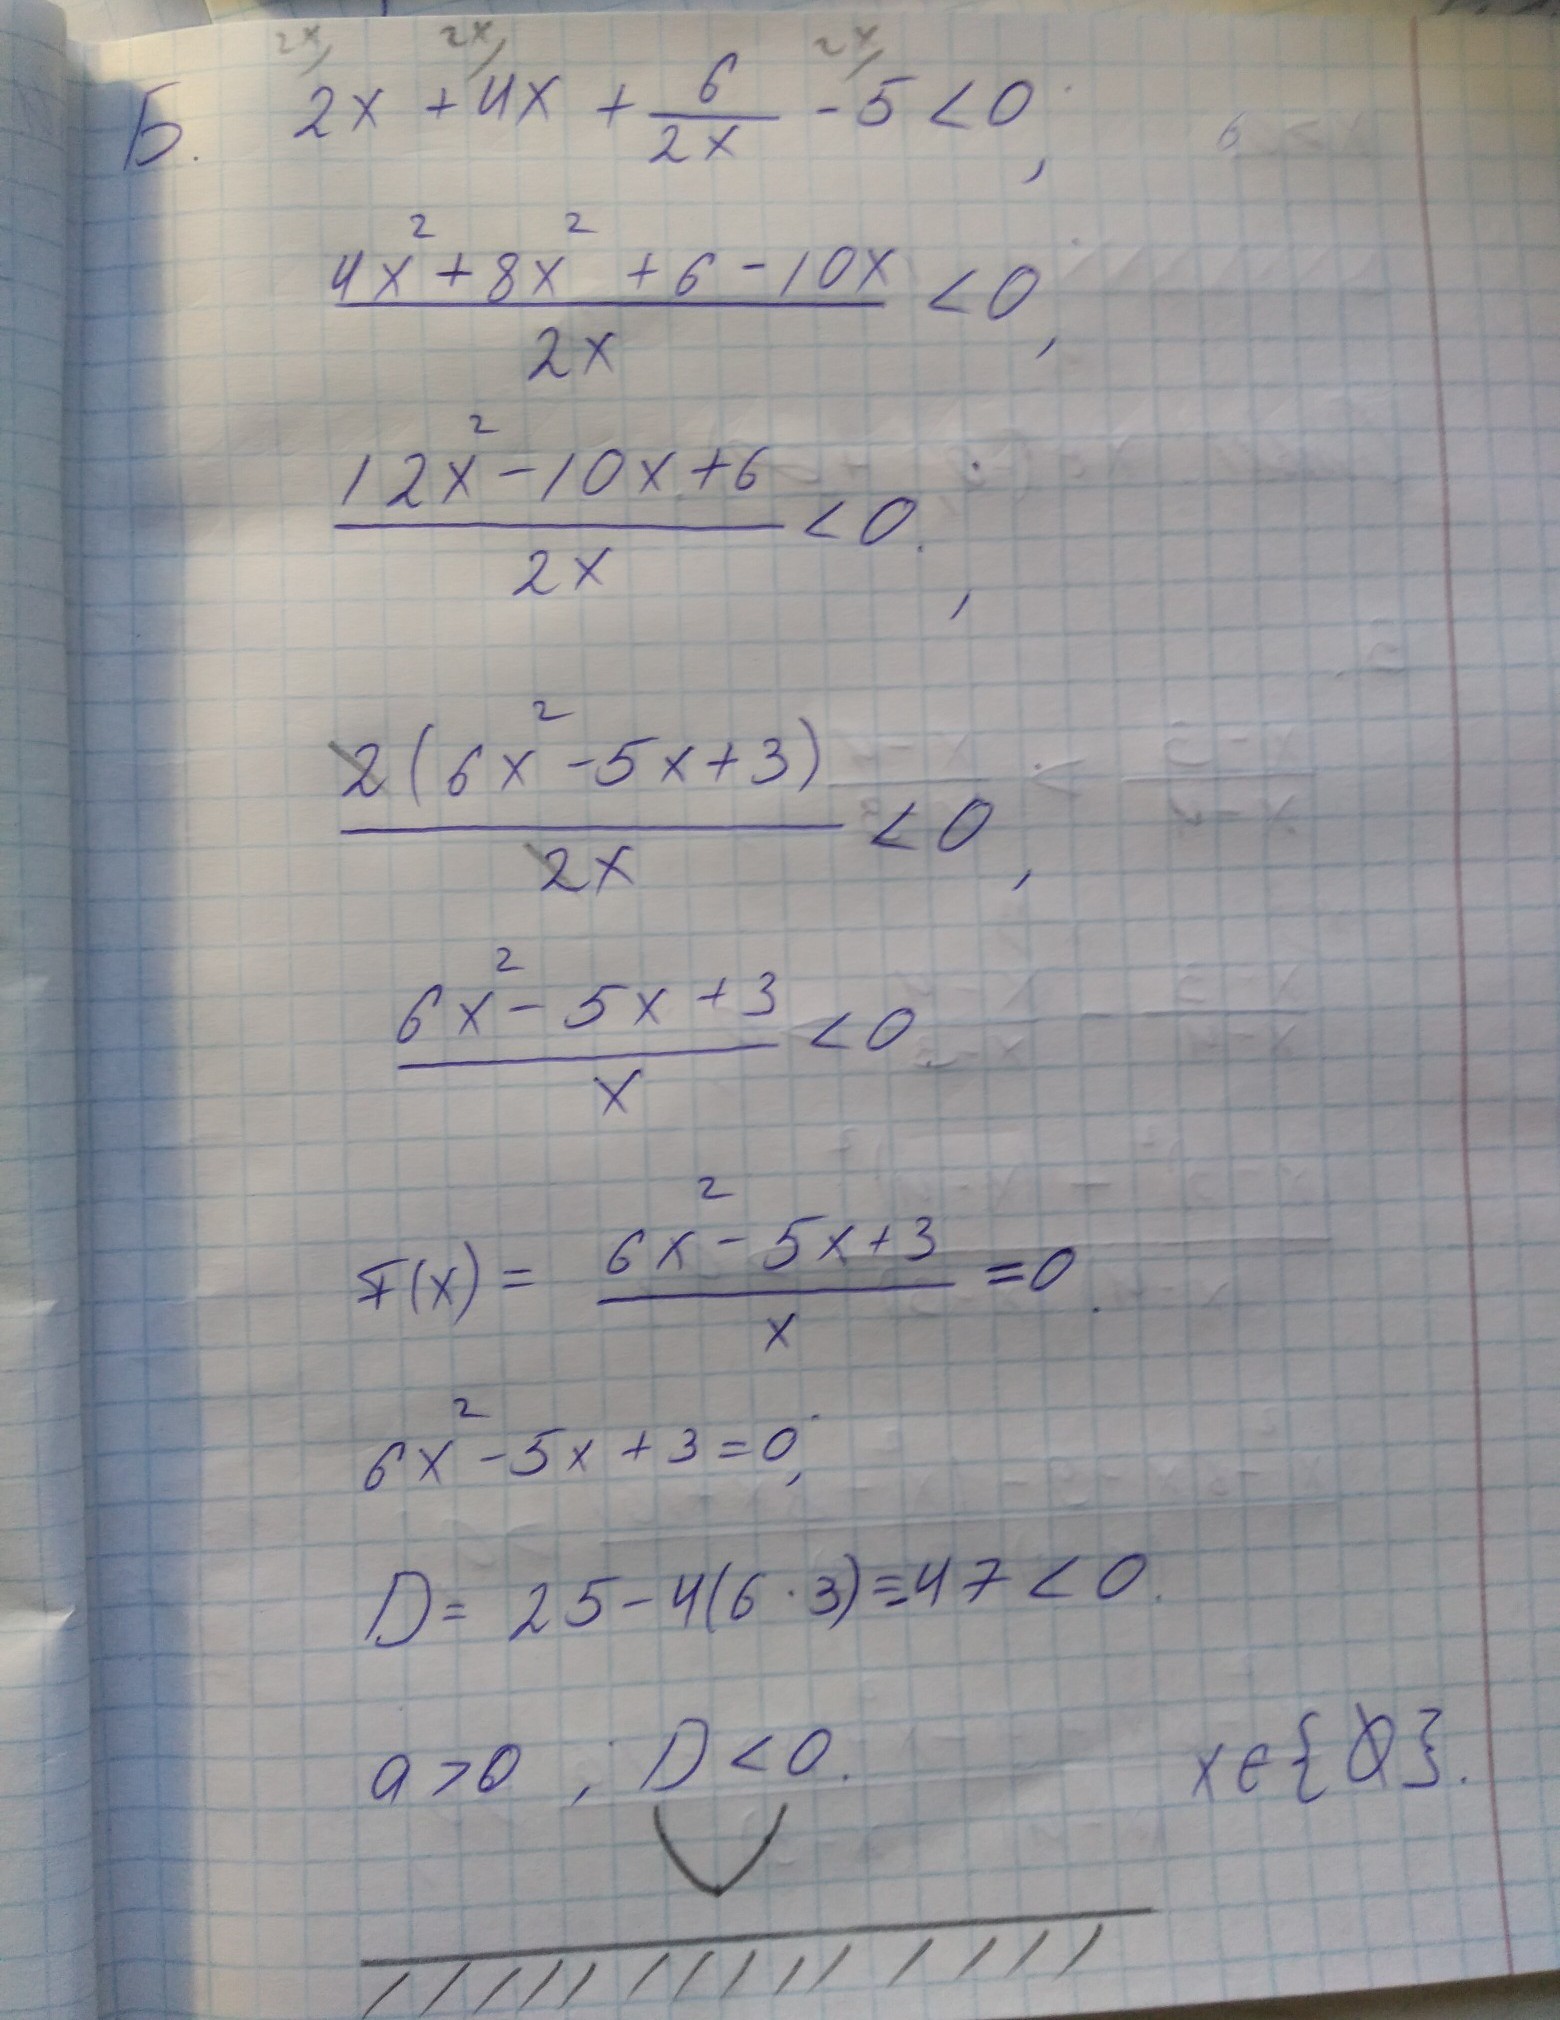 2x, 2x, 2x,
Б. 2x + 4x + 6/2x - 5 < 0,
4x² + 8x² + 6 - 10x / 2x < 0,
12x² - 10x + 6 / 2x < 0,
2(6x² - 5x + 3) / 2x < 0,
6x² - 5x + 3 / x < 0
F(x) = 6x² - 5x + 3 / x = 0.
6x² - 5x + 3 = 0,
D = 25 - 4(6 · 3) = -47 < 0.
a > 0, D < 0. x ∈ {Ø}.